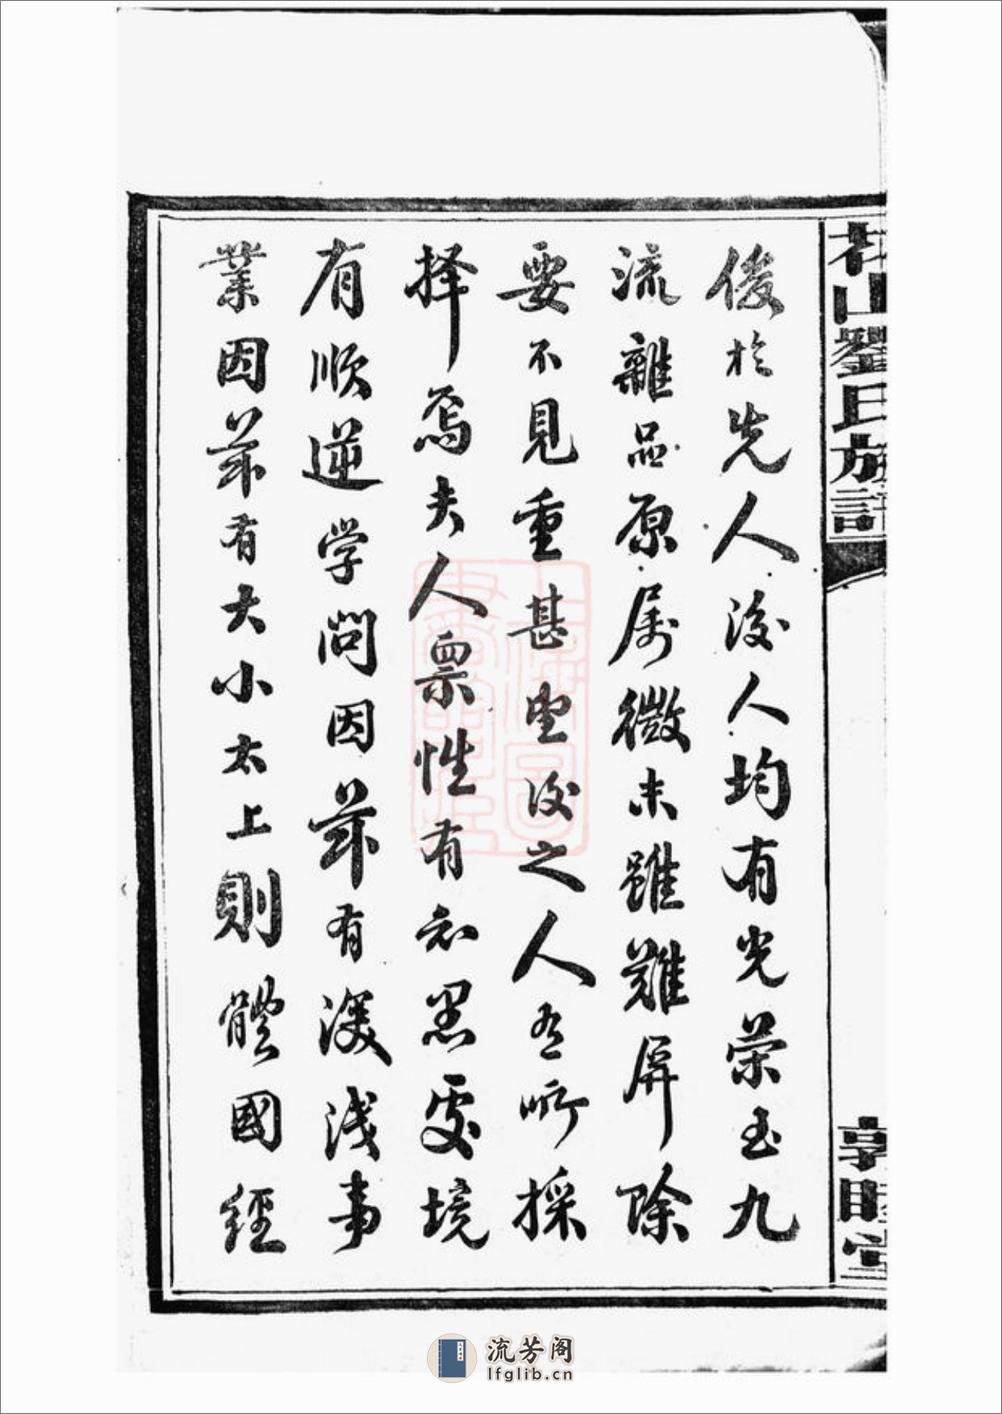 劉氏族譜
敦睦堂
優於先人後人均有光榮至九
流雜品原屬微末雖難屏除
要不見重甚望後之人有所採
擇焉夫人禀性有知愚處境
有順逆学問因有深淺事
業因有大小太上則體國經
流芳阁
lfglib.cn